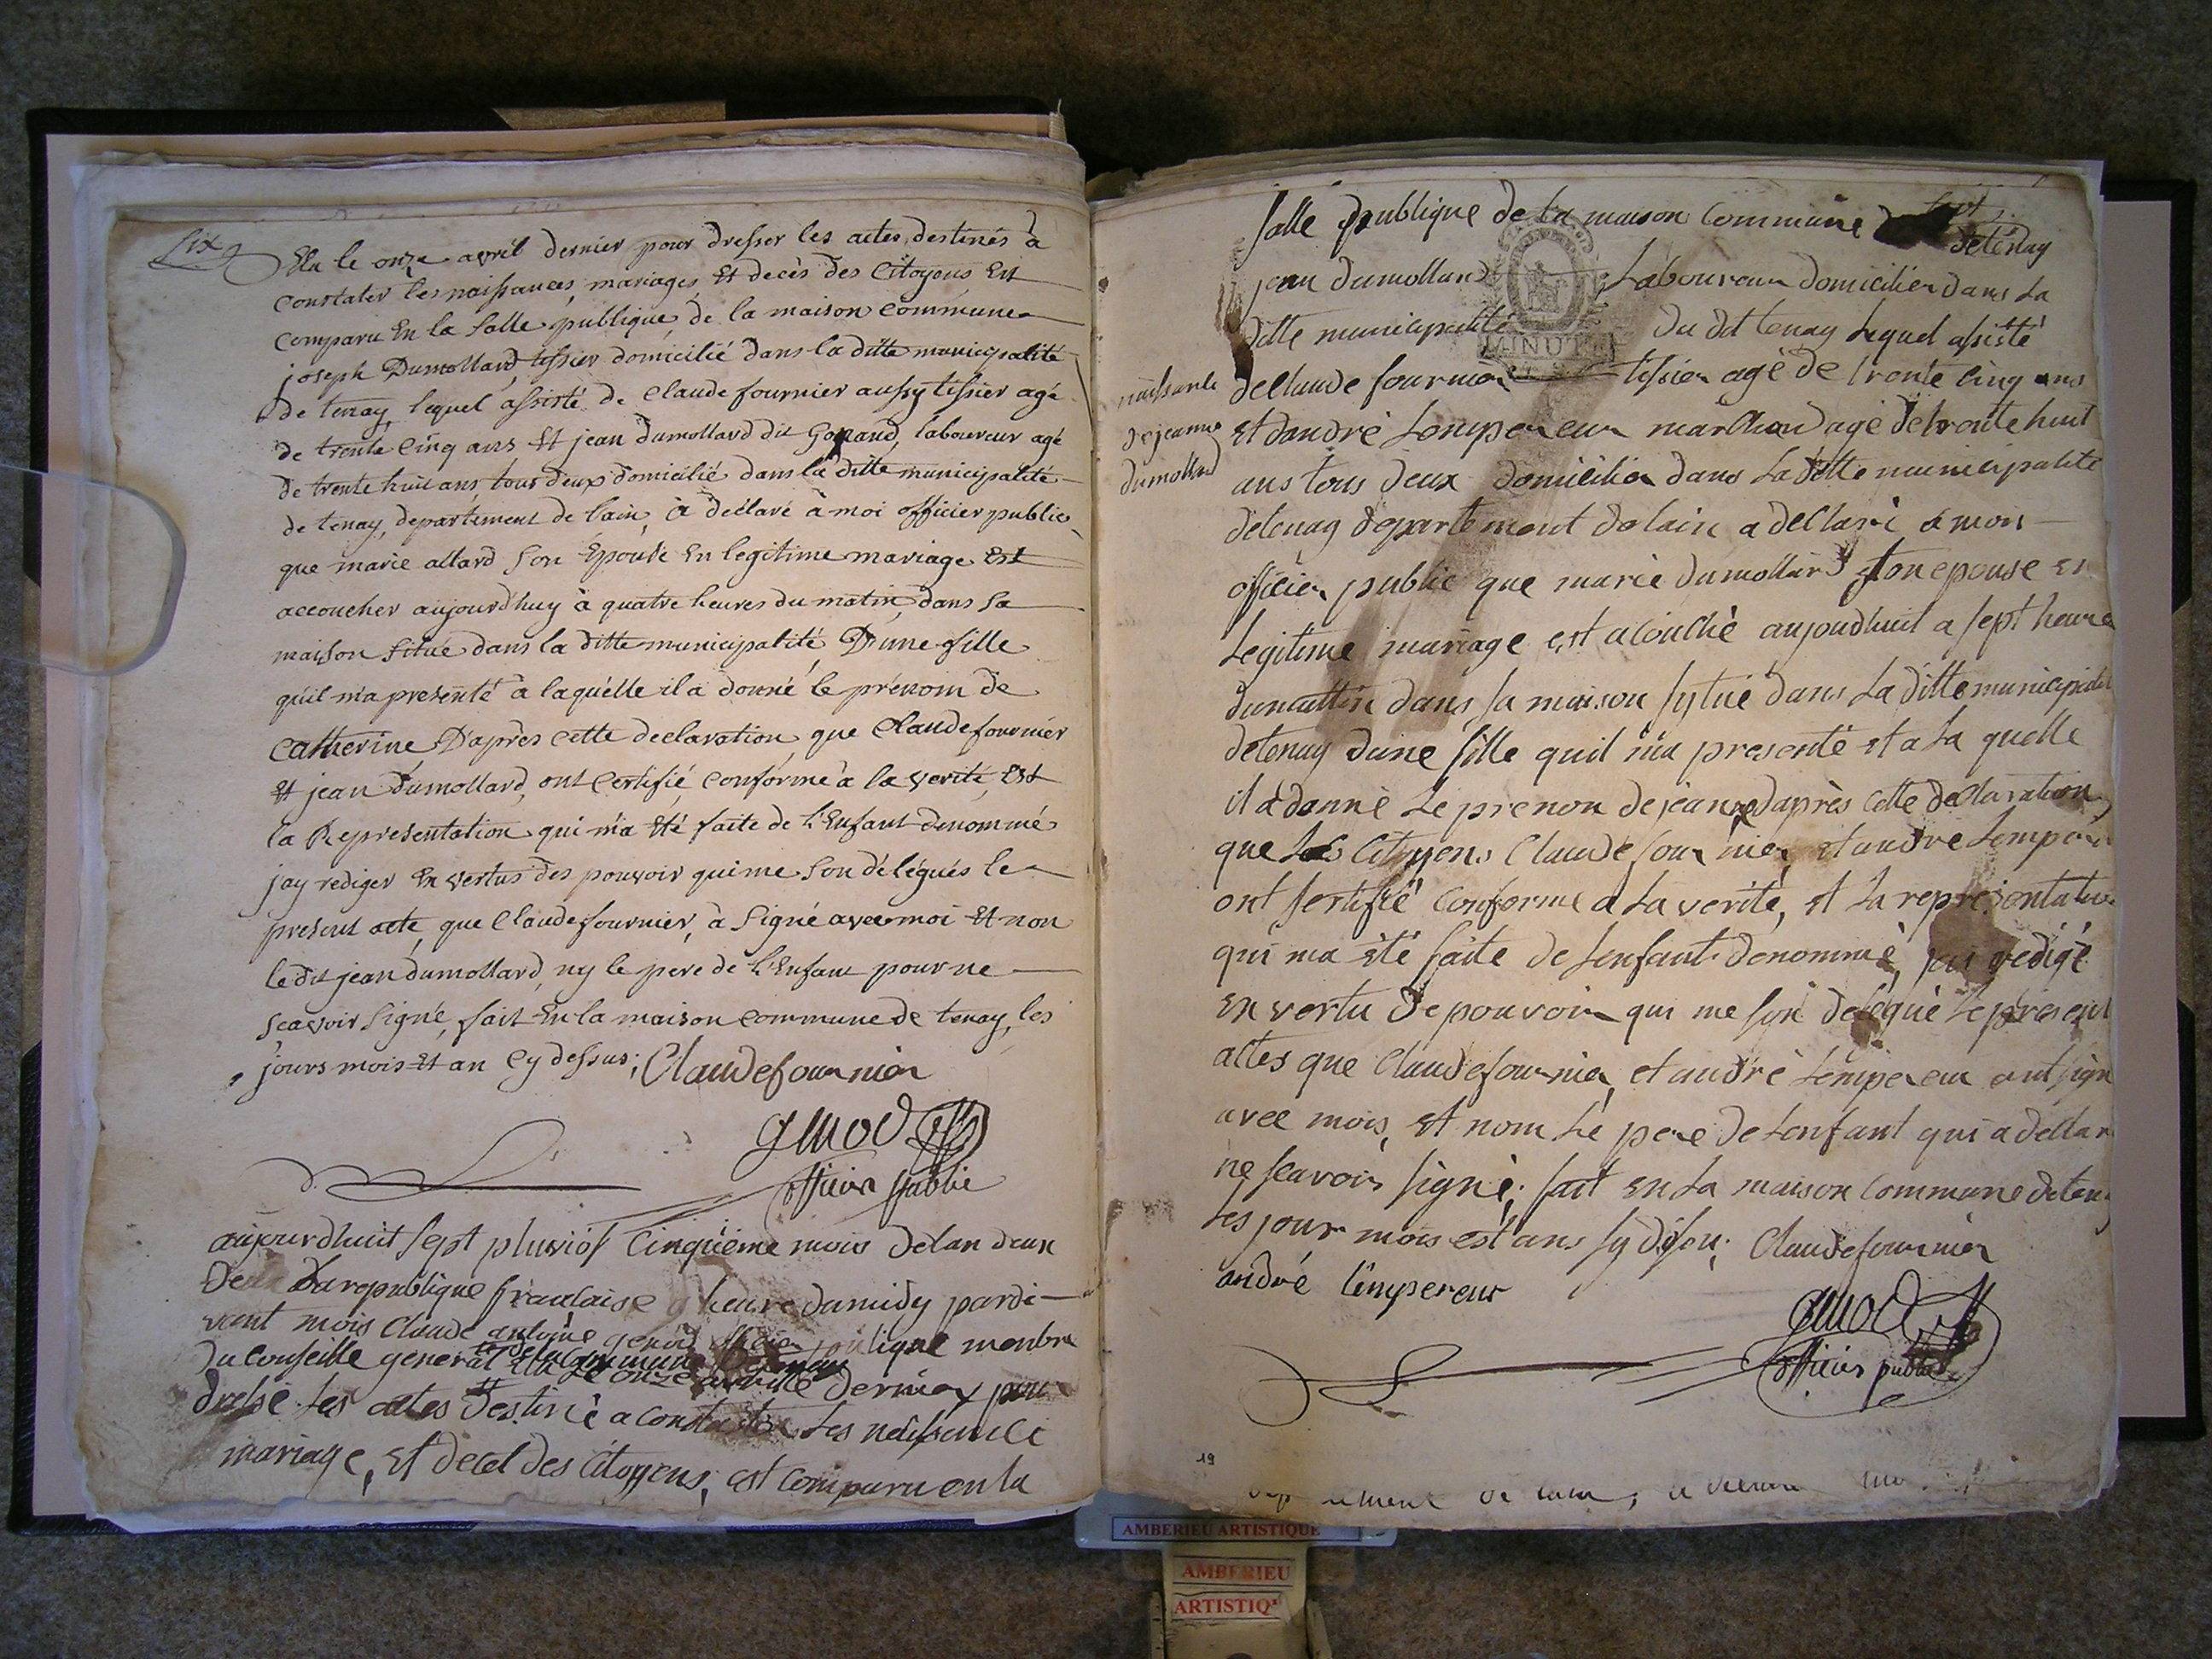 six
Elu le onze avril dernier pour dresser les actes, destinés à
constater les naissances, mariages, Et decès des Citoyens, Est
comparu En la salle publique, de la maison commune
joseph Dumollard, tissier domicilié dans la ditte municipalité
de tenay, lequel assisté de Claude fournier aussy tissier agé
de trente cinq ans Et jean dumollard dit Goyaud, laboureur agé
de trente huit ans, tous deux domicilié dans la ditte municipalité
de tenay, departement de lain, à déclaré à moi officier public,
que marie allard son Epouse En legitime mariage Est
accoucher aujourdhuy à quatre heures du matin, dans sa
maison situé dans la ditte municipalité D'une fille
qu'il m'a presenté à laquelle il a donné le prénom de
Catherine, D'après cette declaration, que Claude fournier
Et jean dumollard, ont Certifié, conforme à la verité, Est
la Representation qui m'a Eté faite de l'Enfant denommé
jay rediger En vertus des pouvoir qui me son délégués le
present acte, que Claude fournier, à signé avec moi Et non
le dit jean dumollard, ny le pere de l'Enfant pour ne
sçavoir signé, fait En la maison commune de tenay, les
jours mois Et an Cy dessus; Claude fournier
genod
officier public
aujourdhuit sept pluvios Cinquieme mois delan deux
De La republique francaise heure dumidy pardi
vant mois Claude antoine genod officier publique menbre
du Conseille general de la Commune de tenay
Elu le onze avrille dernier pour
dresse Les actes destinè a Constater Les naissance
mariage, Et decet des Citoyens, est Comparu en la
salle publique de la maison Commune
detenay
jean dumollard Laboureur domicilier dans La
ditte municipalité du dit tenay Lequel assisté
declaude fournier tissier agé de trente Cinq ans
naissance
de jeanne
dumollard
Et dandré Lempereur marchand agé detrente huit
ans tous deux domicilier dans La ditte municipalité
detenay departement de lain a dellaré a mon
officier public que marie dumollard son epouse En
Legitime mariage est acouchè aujoudhuit a sept heure
dumattin dans sa maison sytué dans La ditte municipalité
detenay dune fille quil ma presenté et a La quelle
il a donné Le prenon de jeanne daprès cette dellaration
que Les Citoyens Claude fournier, et andre Lempereur
ont sertifié Conforme a La verité, Et La representation
qui ma été faite de Lenfant denommé, jai redigé
en vertu de pouvoir qui me son delequé Le present
actes que Claude fournier, et andré Lempereur ont signé
avec mois, Et nom Le pere de Lenfant qui a dellaré
ne seavoir signé; fait en La maison Commune de tenay
Les jour mois est ans sy desou; Claude fournier
andré lempereur
genod
officier public
19
AMBERIEU ARTISTIQUE
AMBERIEU
ARTISTIQ